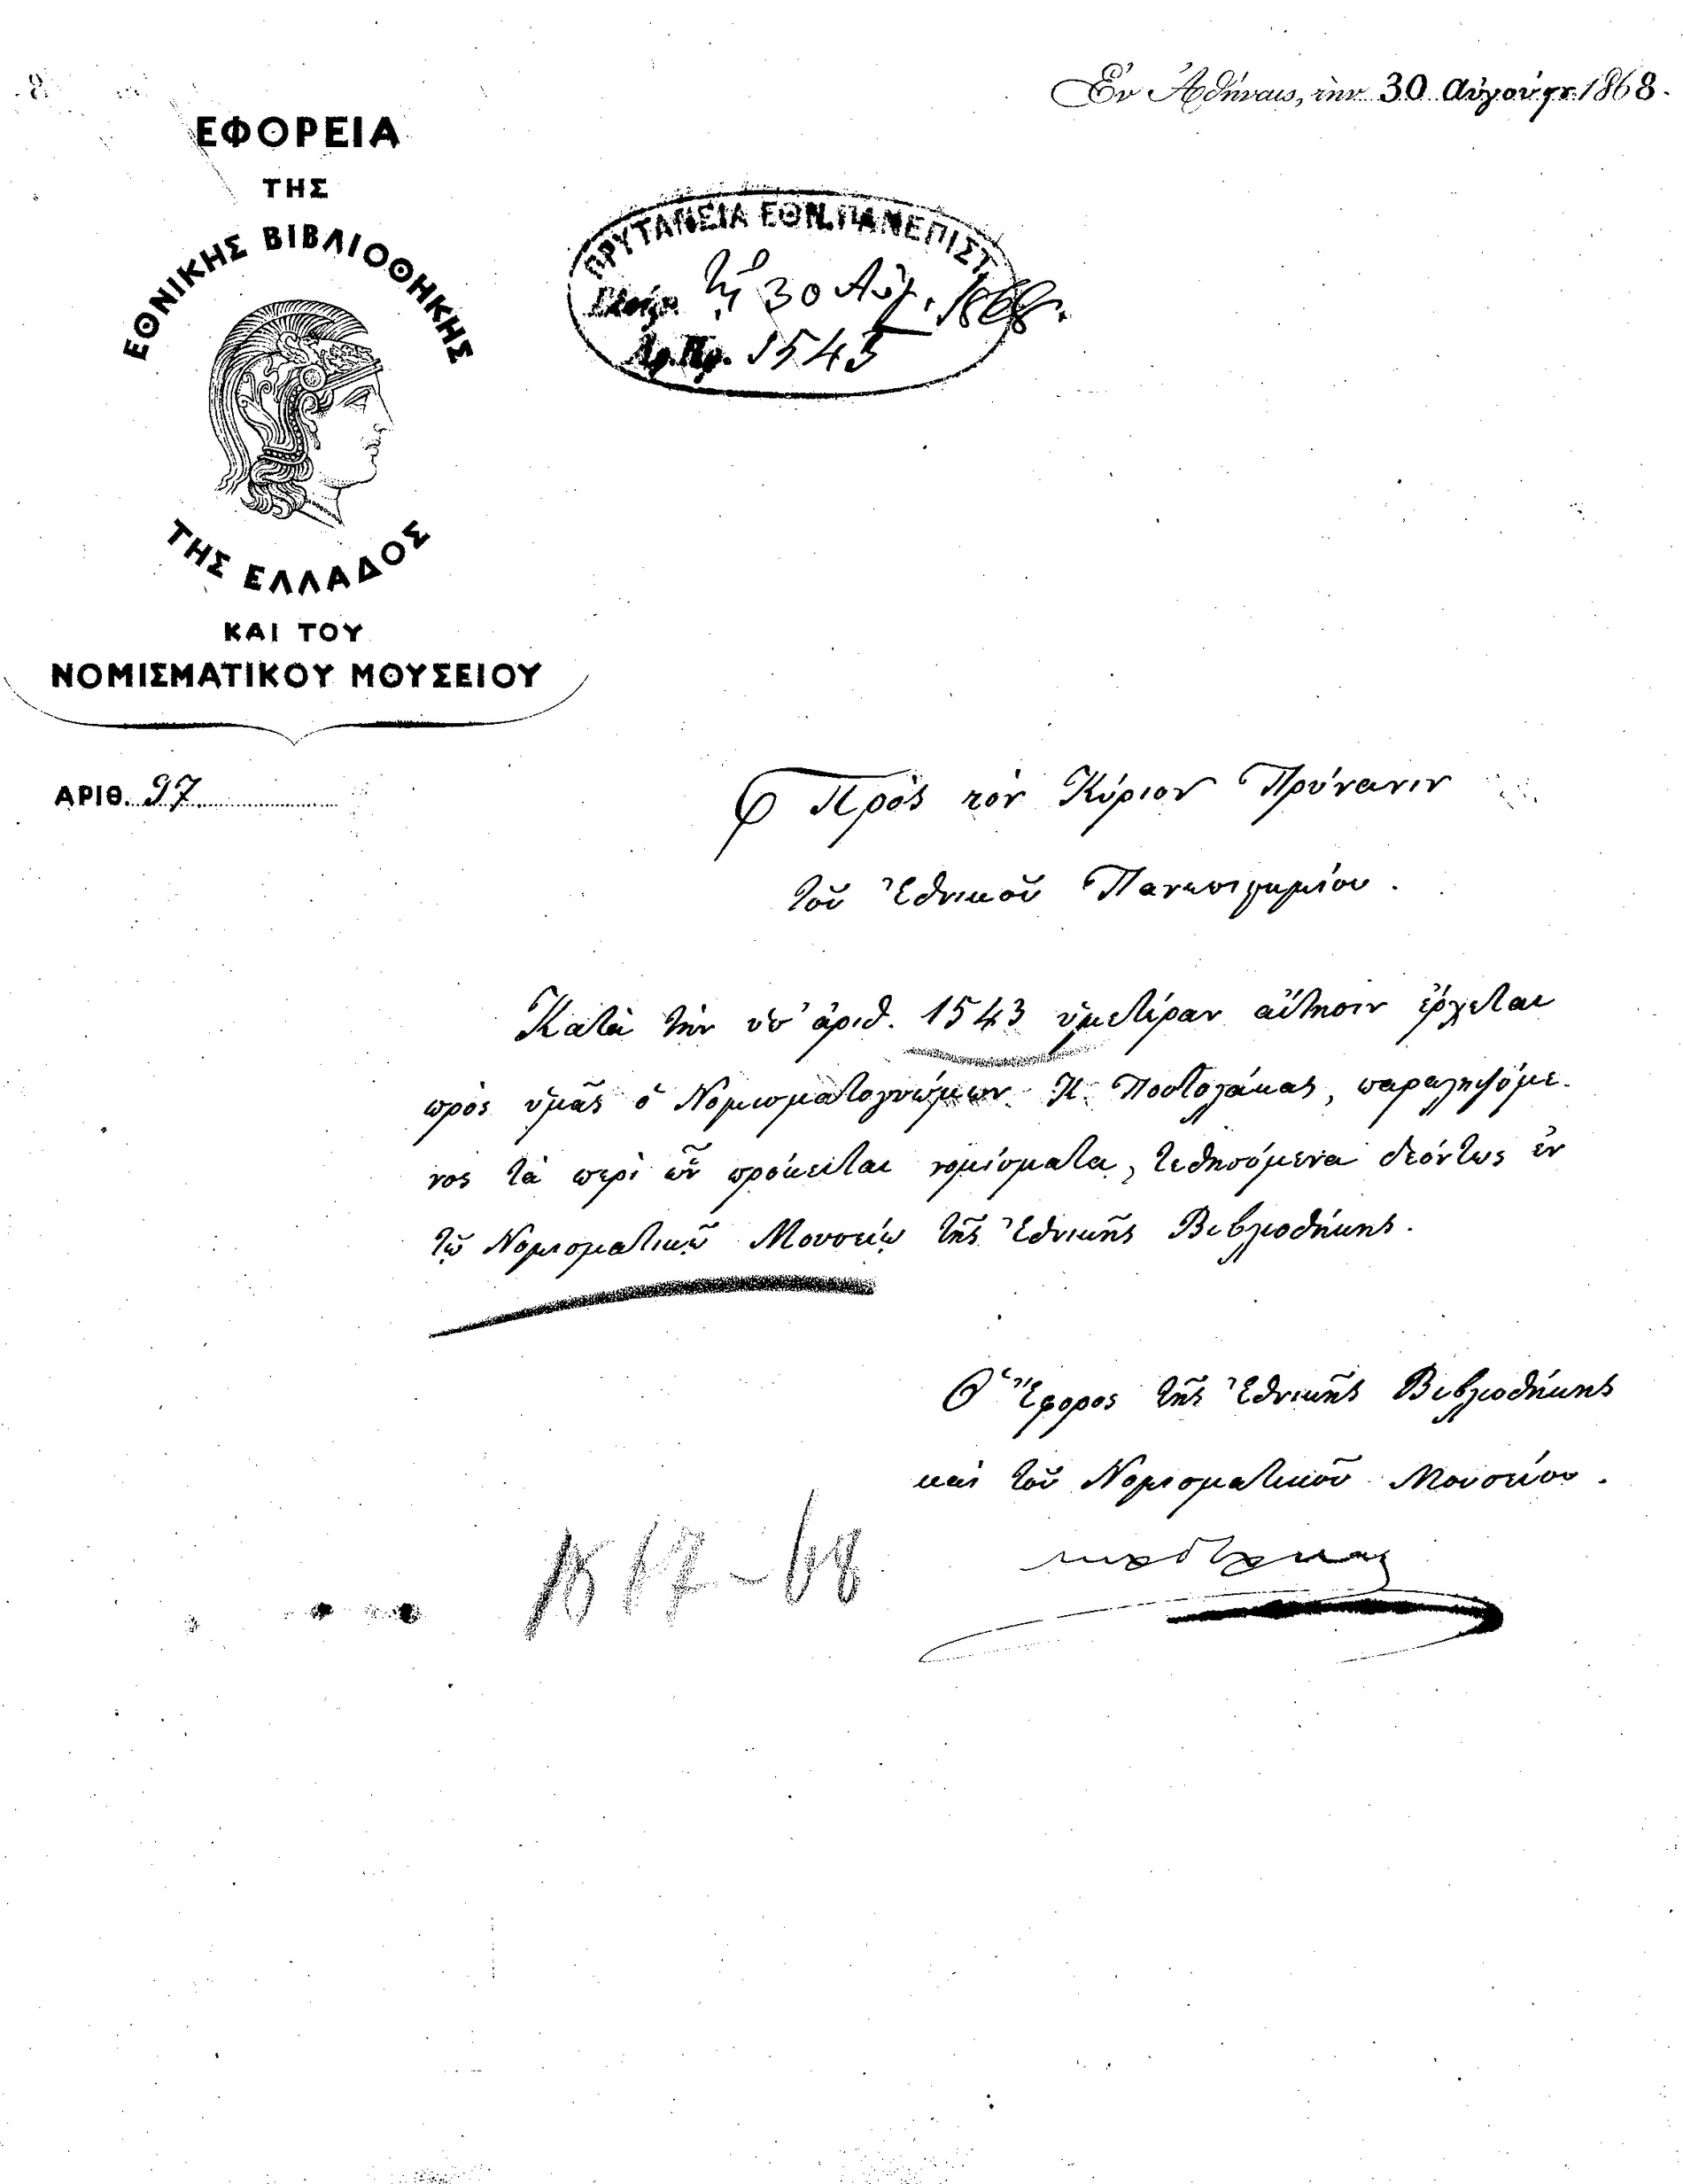 Ἐν Ἀθήναις, τὴν 30 Αὐγούστ. 1868.
ΕΦΟΡΕΙΑ
ΤΗΣ
ΕΘΝΙΚΗΣ ΒΙΒΛΙΟΘΗΚΗΣ
ΤΗΣ ΕΛΛΑΔΟΣ
ΚΑΙ ΤΟΥ
ΝΟΜΙΣΜΑΤΙΚΟΥ ΜΟΥΣΕΙΟΥ
ΑΡΙΘ. 97
ΠΡΥΤΑΝΕΙΑ ΕΘΝ. ΠΑΝΕΠΙΣΤ.
τῇ 30 Αὐγ. 1868.
Αρ. Πρ. 1543
Πρὸς τὸν Κύριον Πρύτανιν
τοῦ Ἐθνικοῦ Πανεπιστημίου.
Κατὰ τὴν ὑπ' ἀριθ. 1543 ὑμετέραν αἴτησιν ἔρχεται
πρὸς ὑμᾶς ὁ Νομισματογνώμων Κ. Ποστολάκας, παραληψόμε-
νος τὰ περὶ ὧν πρόκειται νομίσματα, τεθησόμενα δεόντως ἐν
τῷ Νομισματικῷ Μουσείῳ τῆς Ἐθνικῆς Βιβλιοθήκης.
Ὁ Ἔφορος τῆς Ἐθνικῆς Βιβλιοθήκης
καὶ τοῦ Νομισματικοῦ Μουσείου.
1867-68